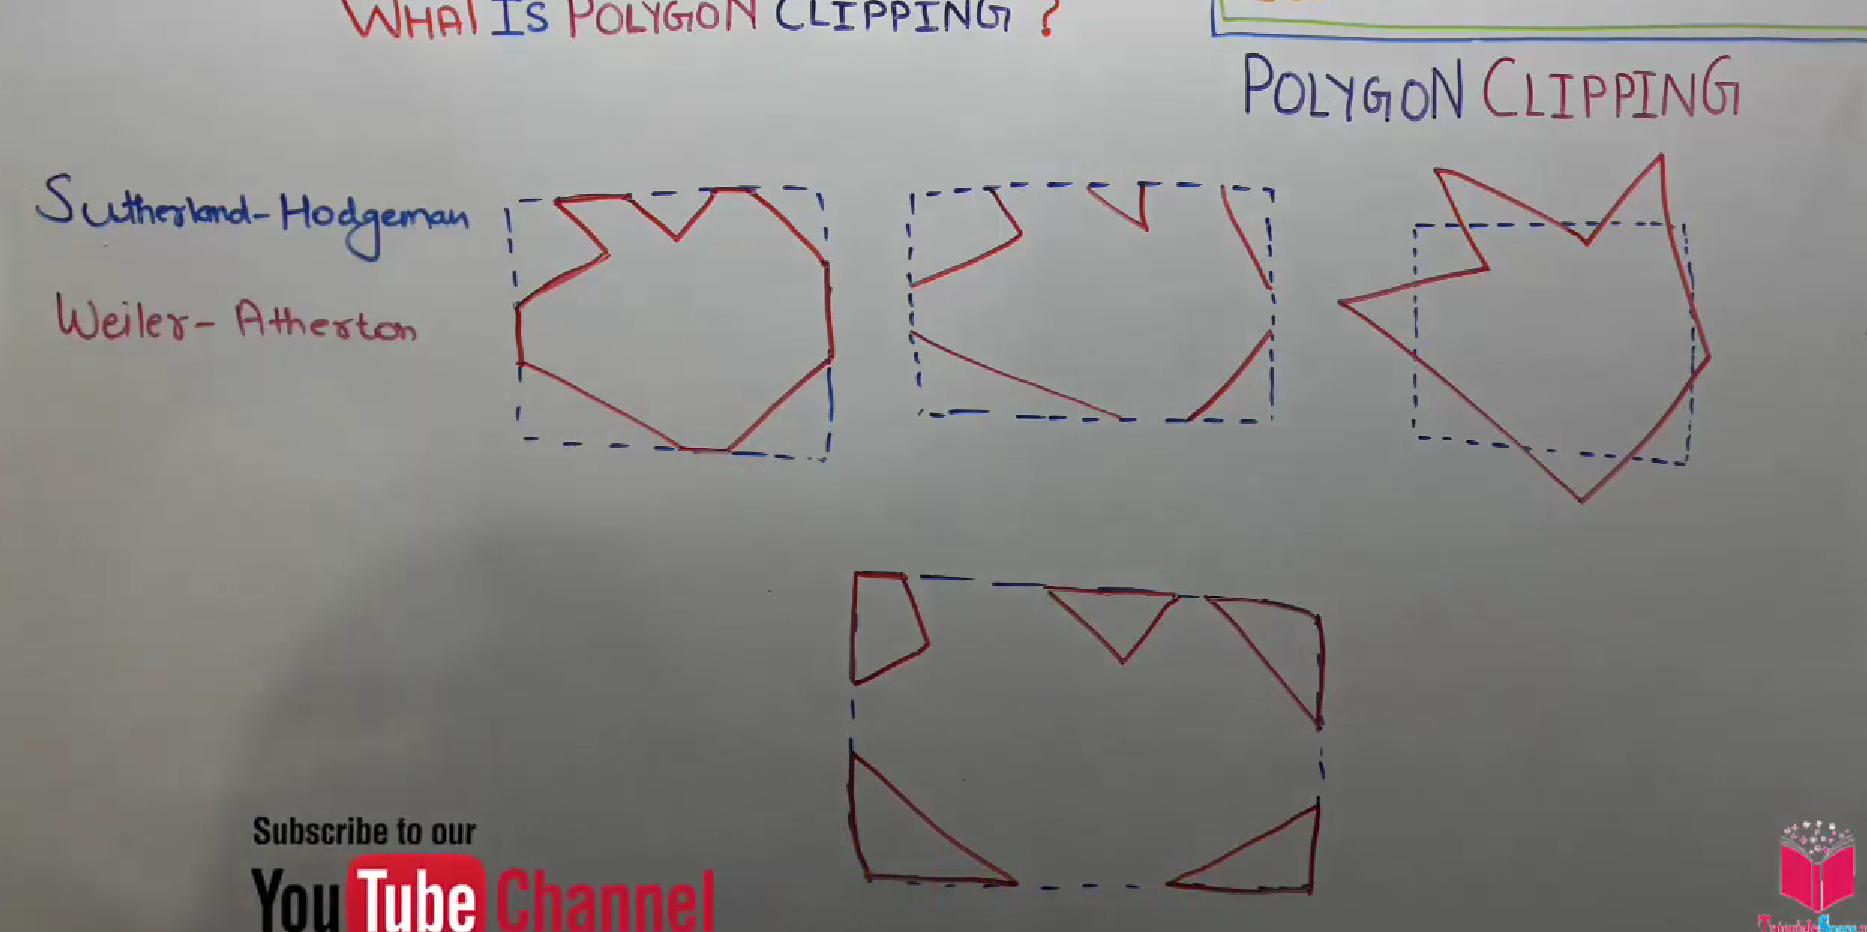 WHAT IS POLYGON CLIPPING ?
POLYGON CLIPPING
Sutherland-Hodgeman
Weiler-Atherton
Subscribe to our
YouTube Channel